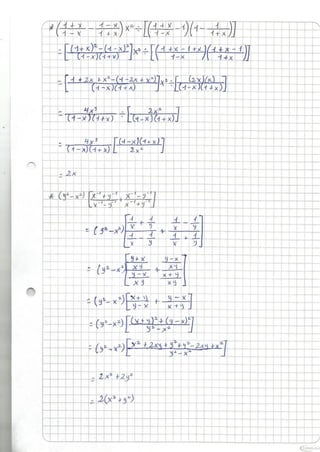 * (1+x/1-x - 1-x/1+x) x² ÷ [(1+x/1-x - 1)(1 - 1/1+x)]
= [(1+x)²-(1-x)²/(1-x)(1+x)] x² ÷ [(1+x-1+x/1-x)(1+x-1/1+x)]
= [1+2x+x²-(1-2x+x²)/(1-x)(1+x)] x² ÷ [(2x)(x)/(1-x)(1+x)]
= 4x³/(1-x)(1+x) ÷ [2x²/(1-x)(1+x)]
= 4x³/(1-x)(1+x) [(1-x)(1+x)/2x²]
= 2x
* (y²-x²) [x⁻¹+y⁻¹/x⁻¹-y⁻¹ + x⁻¹-y⁻¹/x⁻¹+y⁻¹]
= (y²-x²) [1/x + 1/y / 1/x - 1/y + 1/x - 1/y / 1/x + 1/y]
= (y²-x²) [y+x/xy / y-x/xy + y-x/xy / x+y/xy]
= (y²-x²) [x+y/y-x + y-x/x+y]
= (y²-x²) [(x+y)²+(y-x)²/y²-x²]
= (y²-x²) [x²+2xy+y²+y²-2xy+x²/y²-x²]
= 2x²+2y²
= 2(x²+y²)